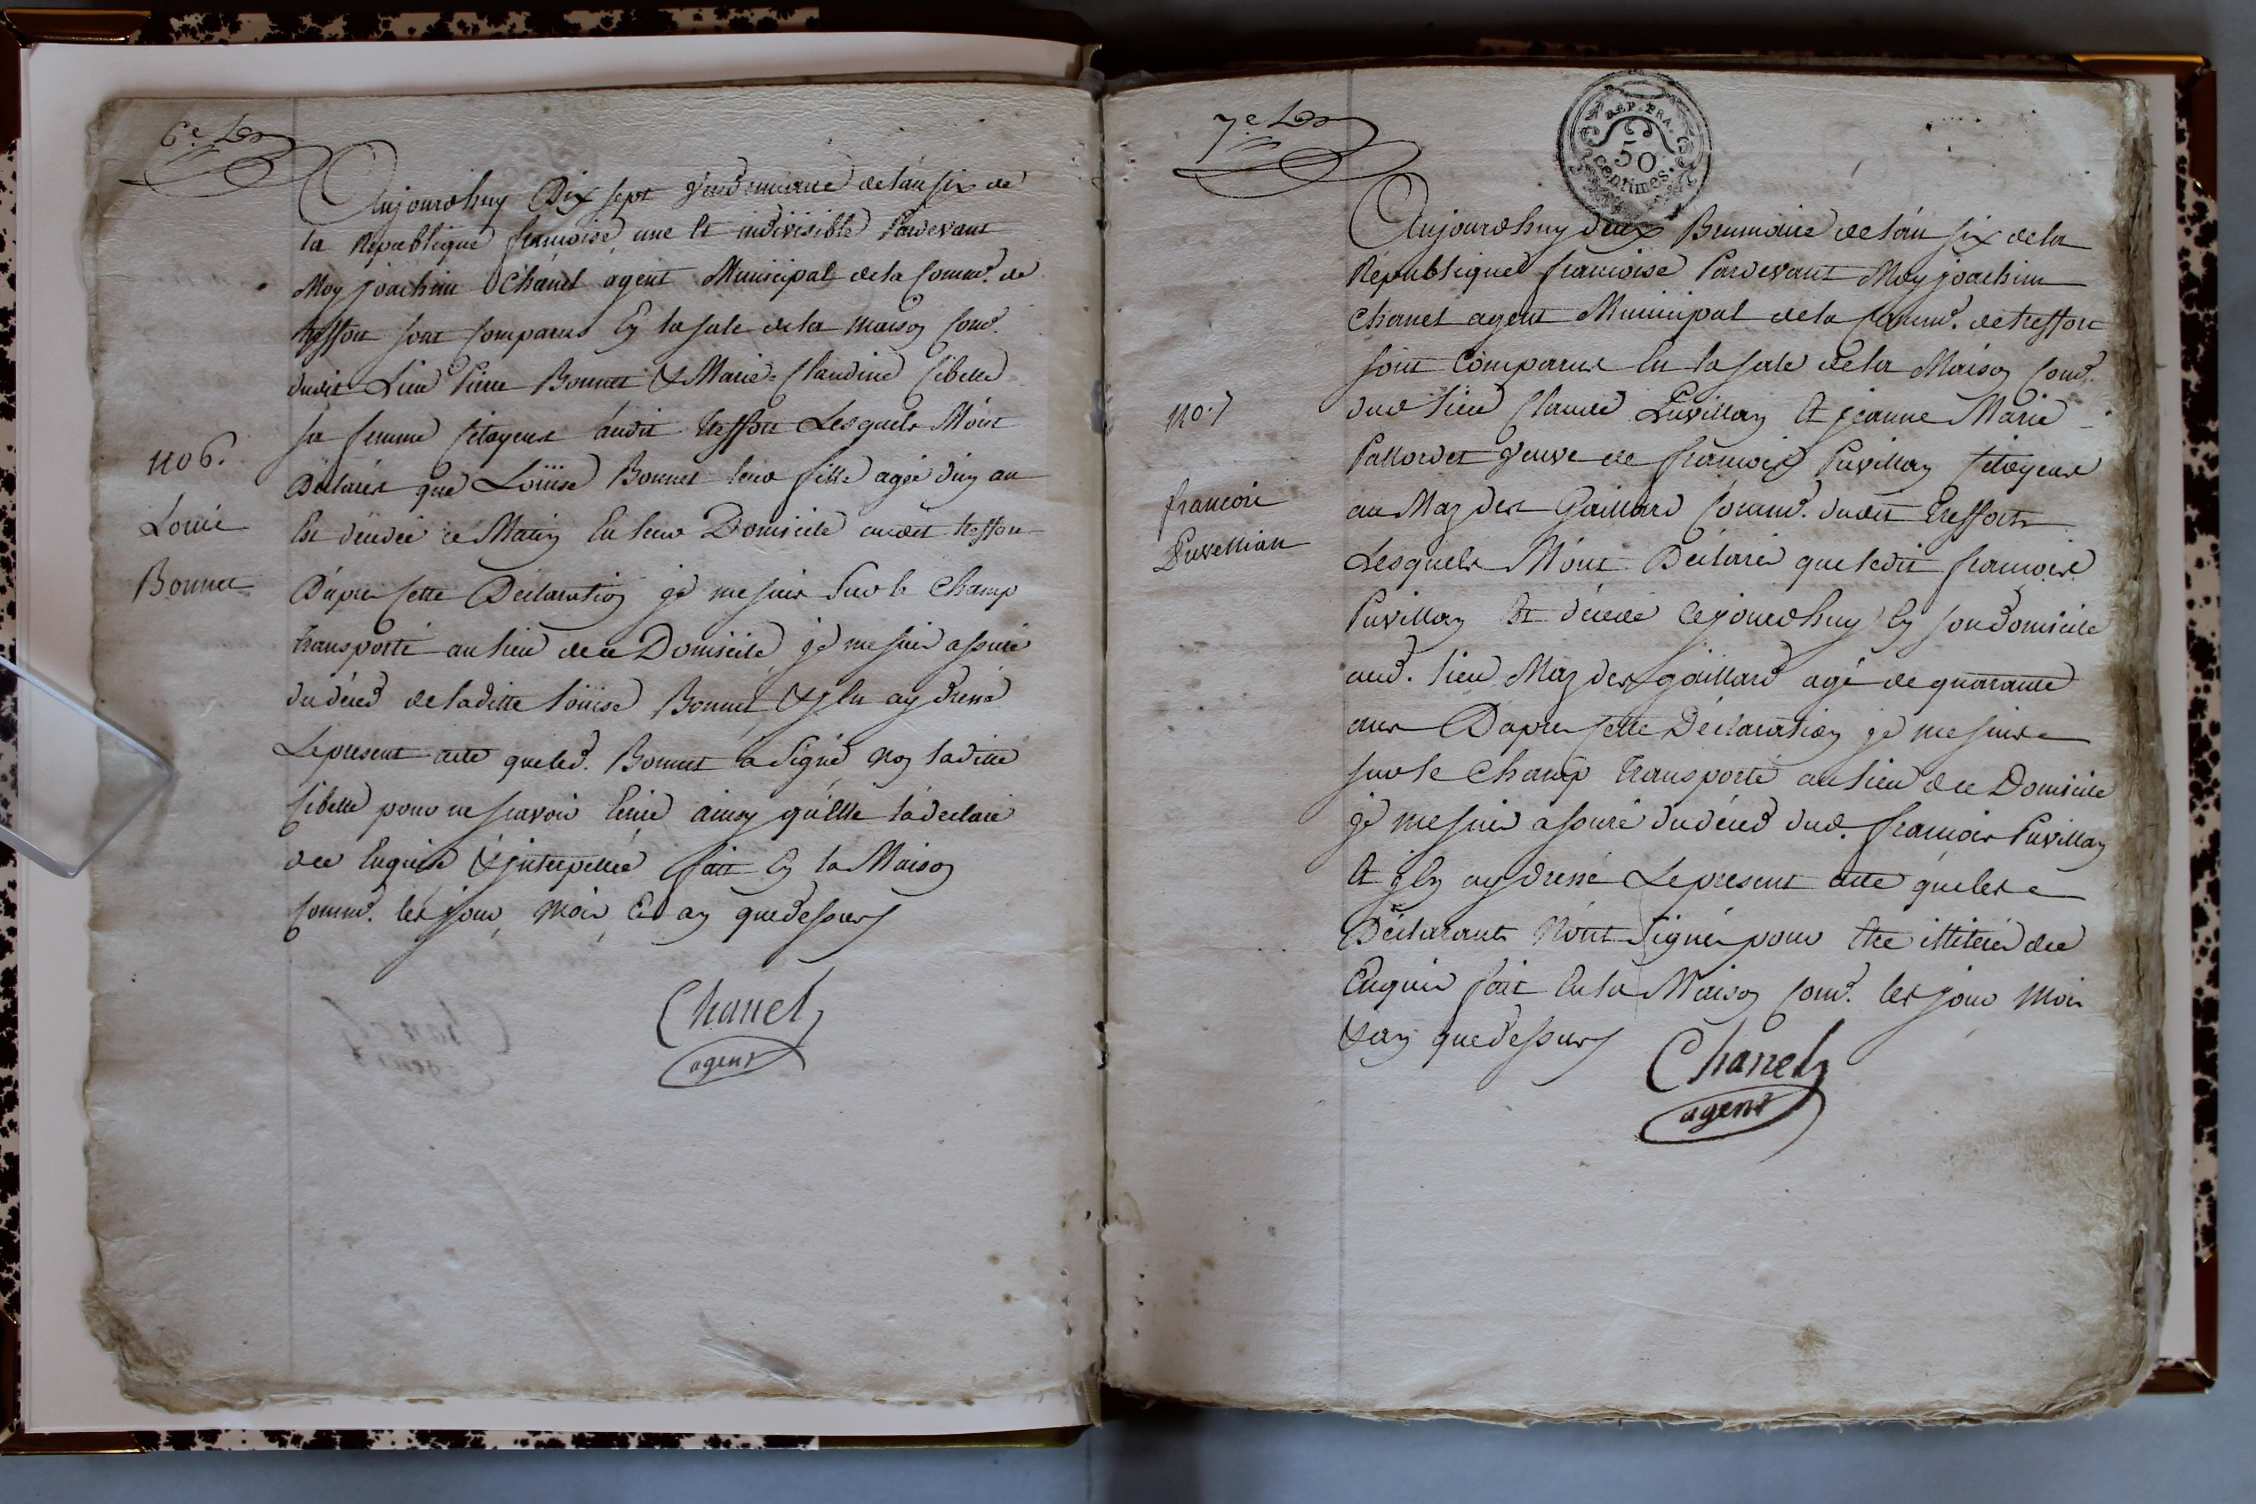 6e
Aujourdhuy Dix sept Vendemiaire de l'an six de
la Republique francoise une Et indivisible Pardevant
Moy joachim Chanel agent Municipal de la Commne. de
treffort sont Comparus En la sale de la maison Comne.
dudit Lieu Pierre Bonnet & Marie-Claudine Sibelle
sa femme Citoyens audit treffort Lesquels M'ont
Déclarés que Loüise Bonnet leur fille agée d'un an
Est décedée ce Matin En leur Domicile audit treffort
D'apres Cette Déclaration je me suis Sur le Champ
transporté au lieu de ce Domicile je me suis assuré
du décéd de laditte loüise Bonnet & j'En ay dressé
Le present acte que led. Bonnet a Signé Non laditte
Sibelle pour ne scavoir Ecrire ainsy qu'Elle l'a déclaré
de ce Enquise & jnterpellée fait En la Maison
Commne. les jour, Mois, Et an que dessus
no 6.
Louise
Bonnet
Chanel
agent
7e
REP. FRA.
50
centimes.
Aujourdhuy deux Brumaire de l'an six de la
Républiques francoise Pardevant Moy joachim
Chanel agent Municipal de la Commne. de treffort
sont Comparus En la sale de la Maison Comne.
dud lieu Claude Puvillan Et jeanne Marie
Pallordet Veuve de francois Puvillan Citoyens
au Maz des Gaillard Commne. dudit treffort
Lesquels M'ont Déclarés que ledit francois
Puvillan Est décedé Cejourdhuy En son domicile
aud. lieu Maz des gaillard agé de quarante
ans D'apres Cette Déclaration je me suis
sur le Champ transporté au lieu de ce Domicile
je me suis assuré du décéd dud. francois Puvillan
Et j'En ay dressé Le present acte que les
Déclarants N'ont Signés pour Etre illiterés de ce
Enquis fait En la Maison Comne. les jour Mois
& an que dessus
no. 7
francois
Puvellian
Chanel
agent